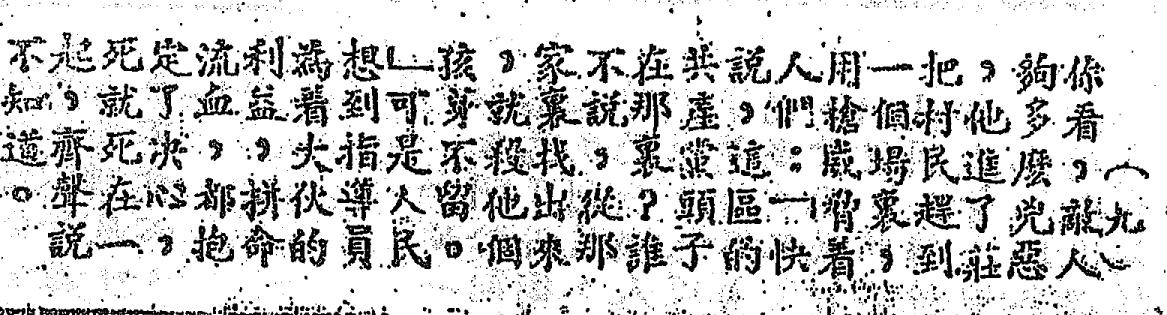 （九）
你看，敵人
夠多麽兇惡
，他進了莊
把村民趕到
一個場裏，
用槍威脅着
人們：「快
說，這區的
共產黨頭子
在那裏？誰
不說，從那
家裏找出來
，就殺他個
孩芽不留。
」可是人民
想到指導員
為着大伙的
利益，拼命
流血，都抱
定了决心，
死就死在一
起，齊聲說
不知道。